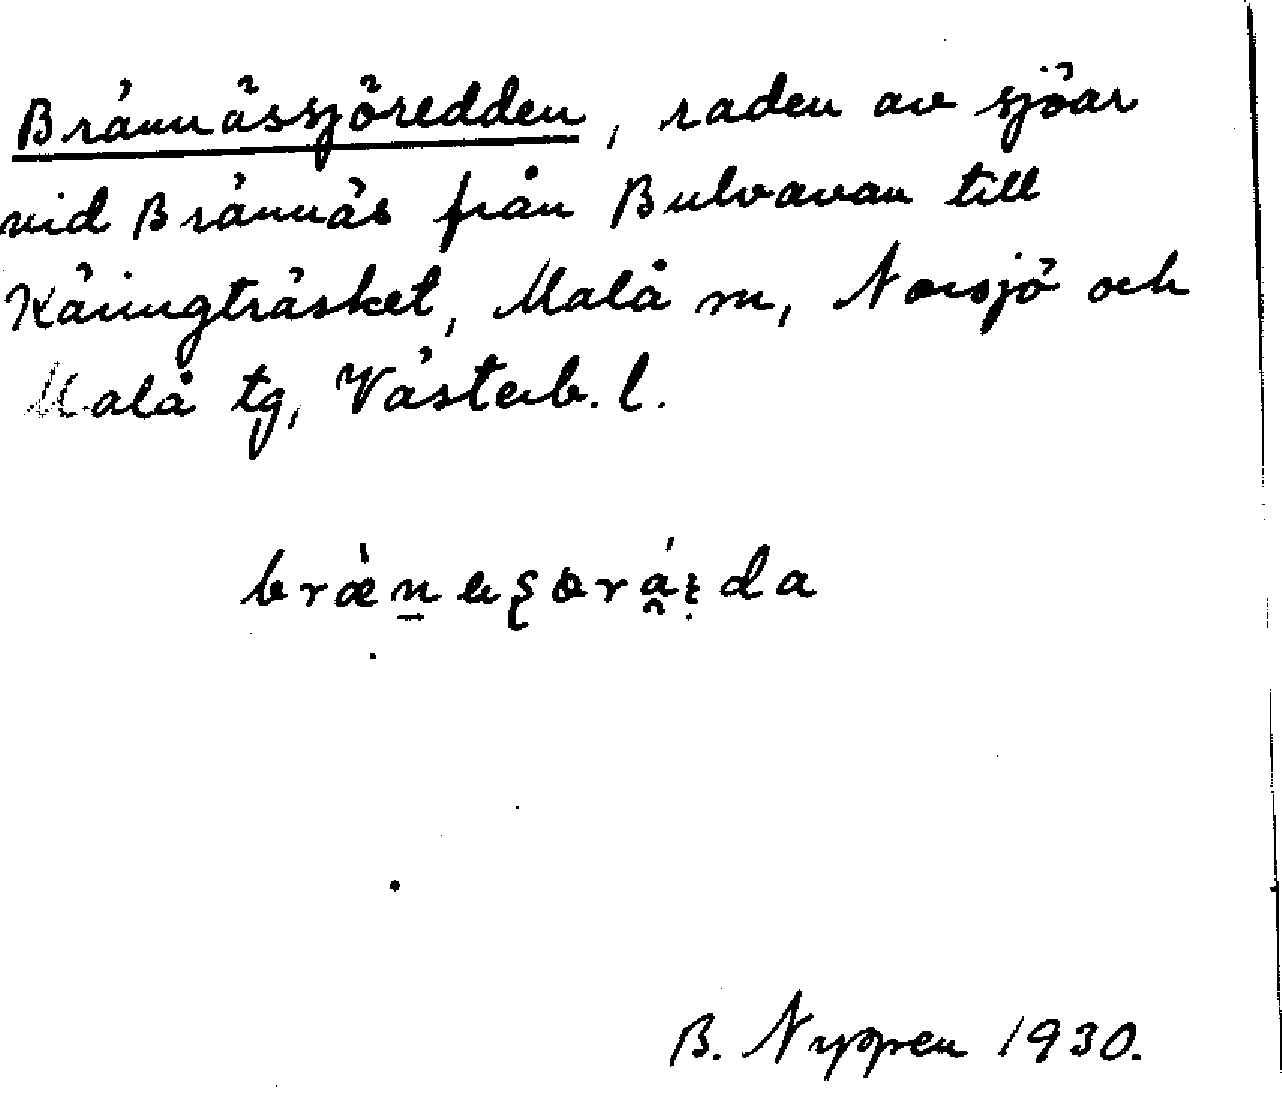 Brännässjöredden, raden av sjöar
vid Brännäs från Bulvavan till
Käringträsket, Malå sn, Norsjö och
Malå tg, Västerb. l.
B. Nyppen 1930.